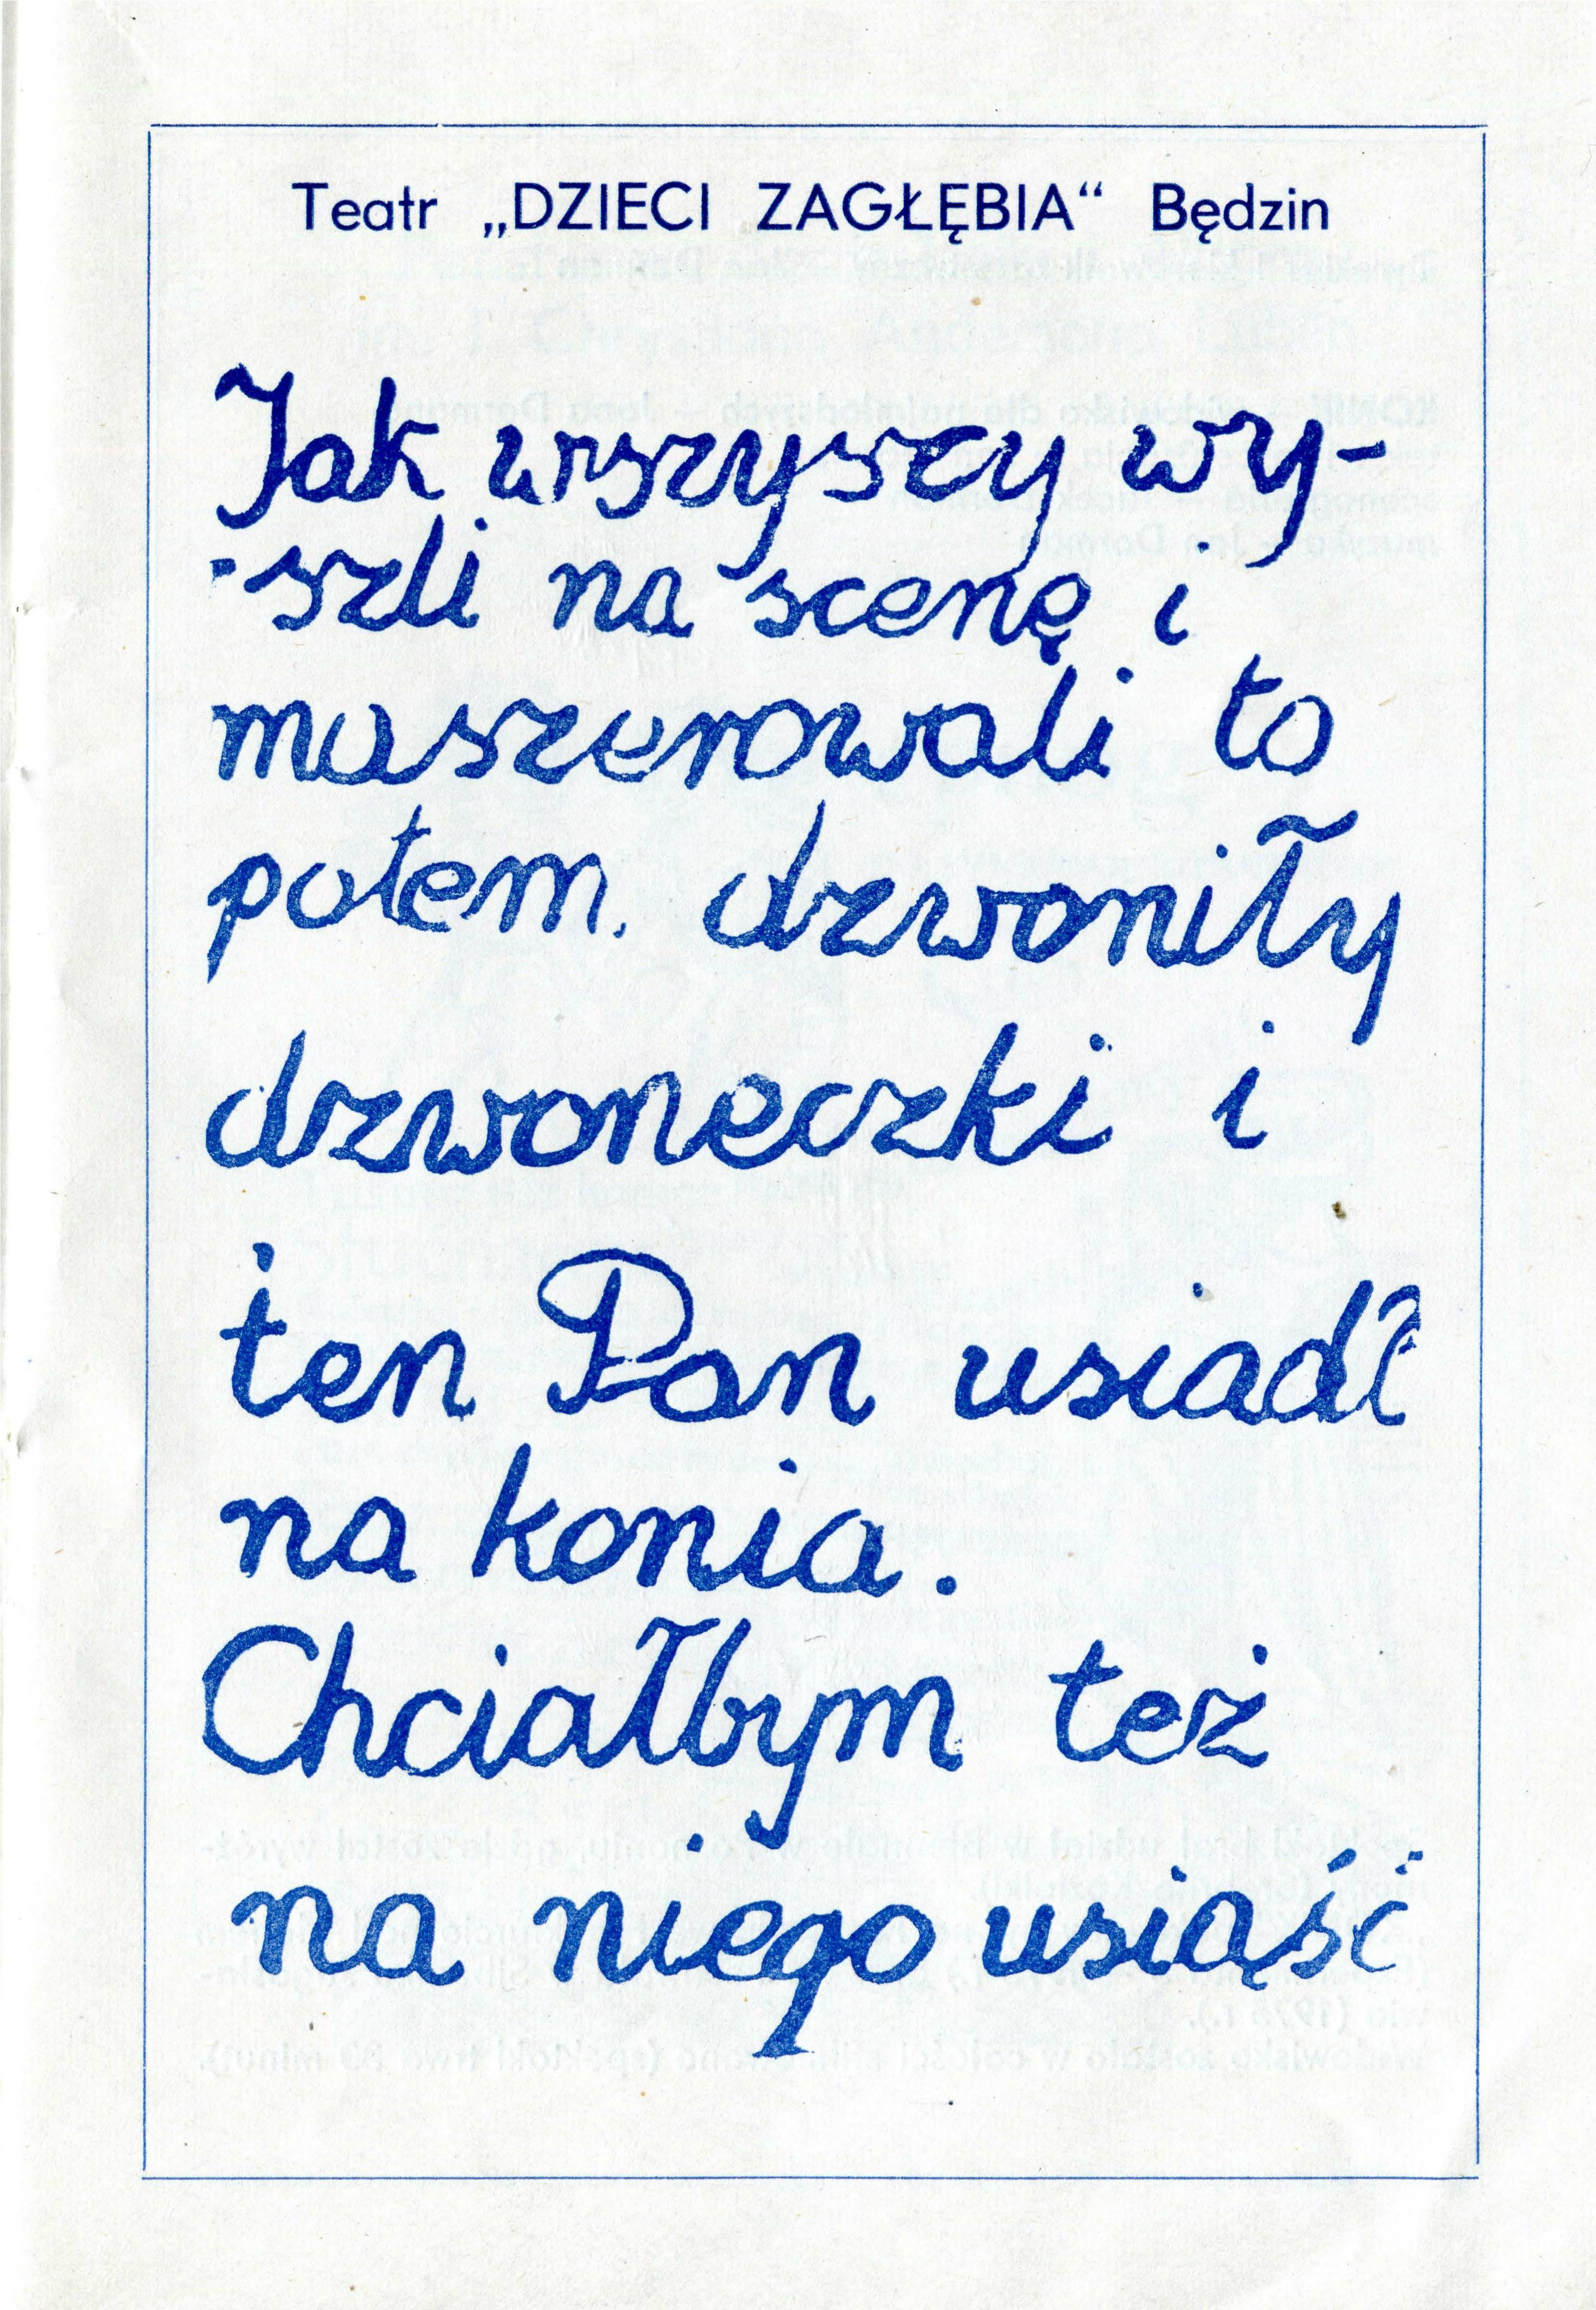 Teatr „DZIECI ZAGŁĘBIA“ Będzin
Jak wszyscy wy-
-szli na scenę i
maszerowali to
potem. dzwoniły
dzwoneczki i
ten Pan usiadł
na konia.
Chciałbym też
na niego usiąść